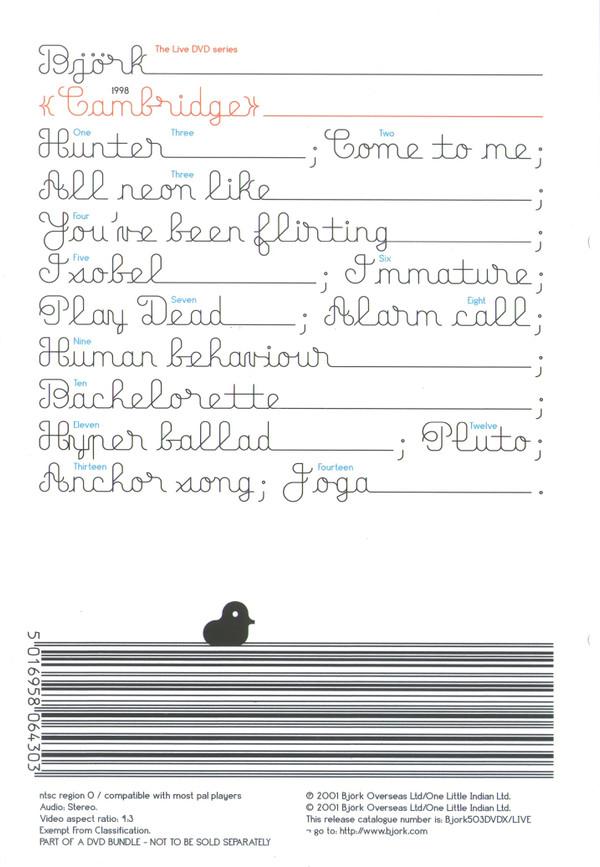 Björk The Live DVD series
1998
{Cambridge}
One Three Two
Hunter ; Come to me;
Three
All neon like ;
Four
You've been flirting ;
Five Six
Isobel ; Immature;
Seven Eight
Play Dead ; Alarm call;
Nine
Human behaviour ;
Ten
Bachelorette ;
Eleven Twelve
Hyper ballad ; Pluto;
Thirteen Fourteen
Anchor song; Joga .
5 016958 064303
ntsc region 0 / compatible with most pal players
Audio: Stereo.
Video aspect ratio: 4:3
Exempt From Classification.
PART OF A DVD BUNDLE - NOT TO BE SOLD SEPARATELY
℗ 2001 Bjork Overseas Ltd/One Little Indian Ltd.
© 2001 Bjork Overseas Ltd/One Little Indian Ltd.
This release catalogue number is: Bjork503DVDX/LIVE
¬ go to: http://www.bjork.com